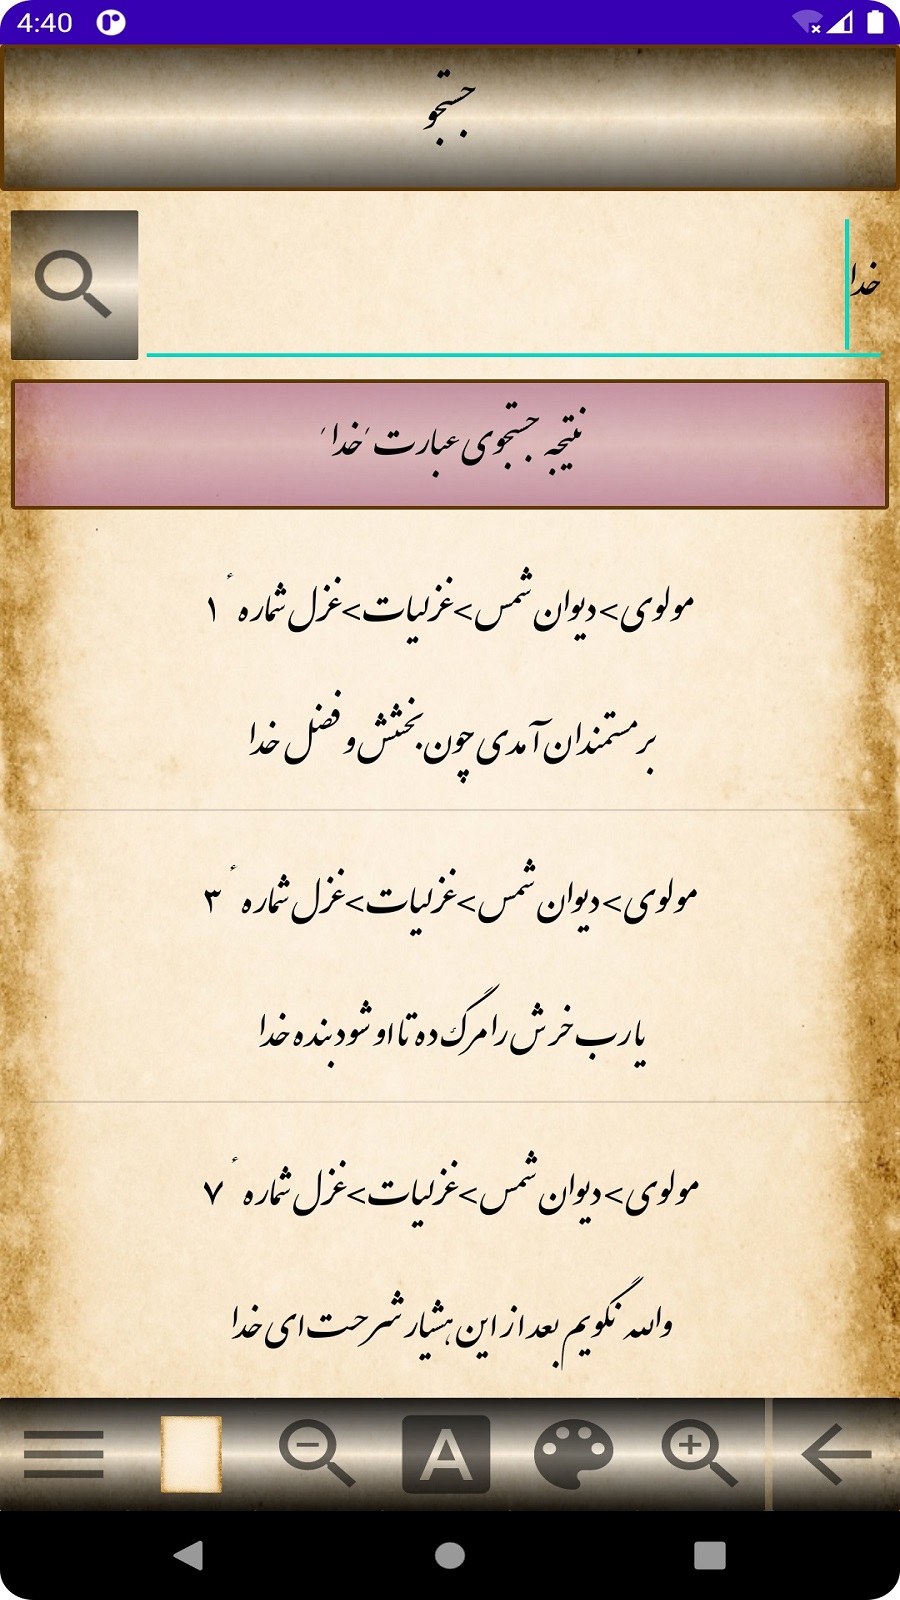 4:40
جستجو
خدا
نتیجه جستجوی عبارت 'خدا'
مولوی>دیوان شمس>غزلیات>غزل شمارهٔ ۱
بر مستمندان آمدی چون بخشش و فضل خدا
مولوی>دیوان شمس>غزلیات>غزل شمارهٔ ۳
یارب خرش را مرگ ده تا او شود بنده خدا
مولوی>دیوان شمس>غزلیات>غزل شمارهٔ ۷
والله نگویم بعد از این هشیار شرحت ای خدا
A